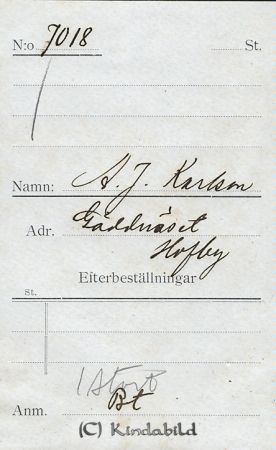 N:o 7018 St.
Namn: A. J. Karlson
Adr. Gäddnäset
Hofby
Efterbeställningar
St.
1 stort
Anm. Bt
(C) Kindabild